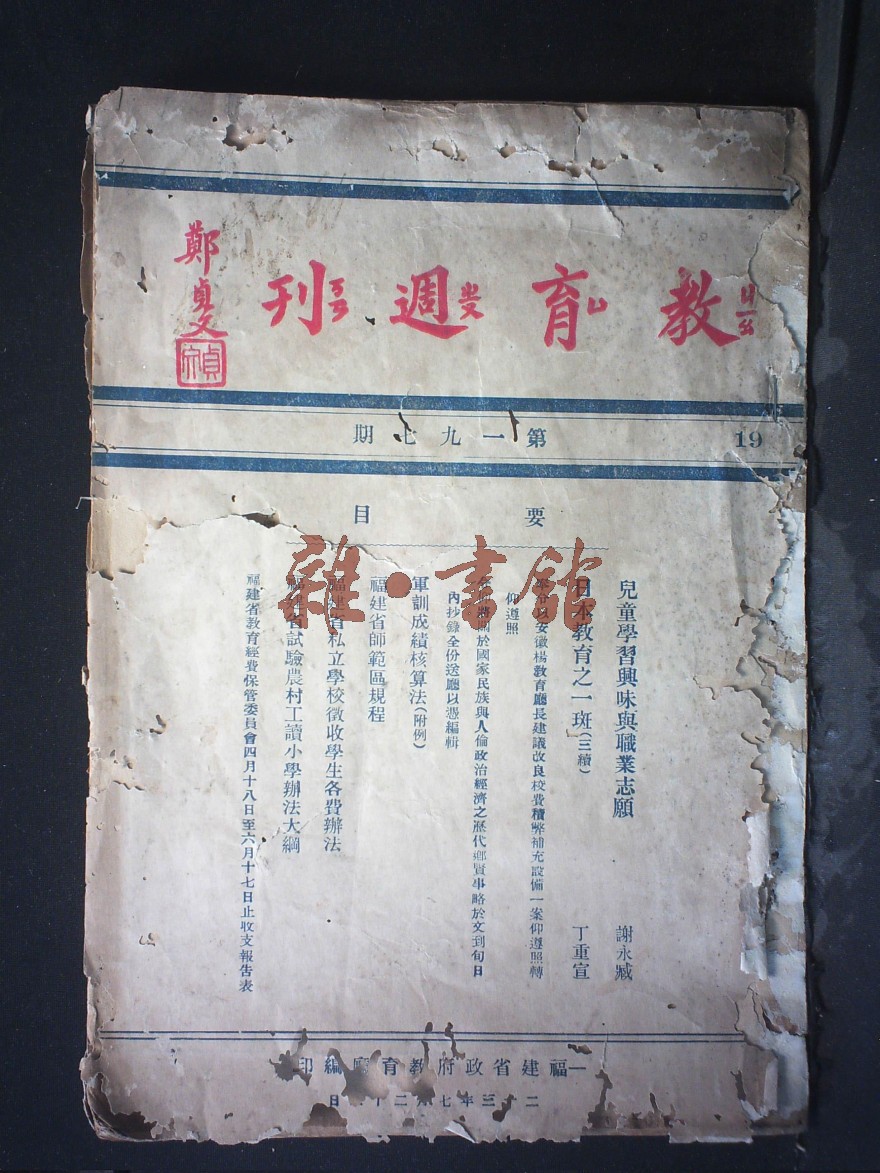 教育週刊
鄭貞文
第一九七期
19
要目
兒童學習興味與職業志願 謝永臧
日本教育之一斑(三續) 丁重宣
安徽楊教育廳長建議改良校費積弊補充設備一案仰遵照轉
仰遵照
關於國家民族與人倫政治經濟之歷代鄉賢事略於文到旬日
內抄錄全份送廳以憑編輯
軍訓成績核算法(附例)
福建省師範區規程
福建省私立學校徵收學生各費辦法
福建省試驗農村工讀小學辦法大綱
福建省教育經費保管委員會四月十八日至六月十七日止收支報告表
福建省政府教育廳編印
二十三年七月二十日
雜·書館